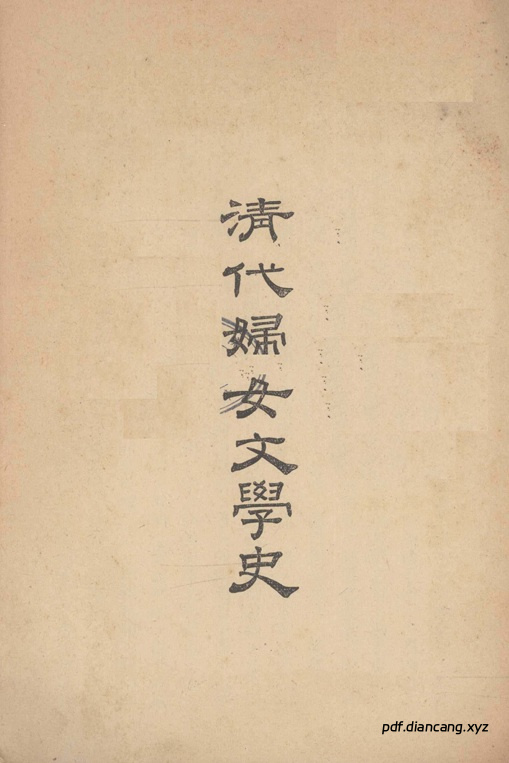 清代婦女文學史
pdf.diancang.xyz